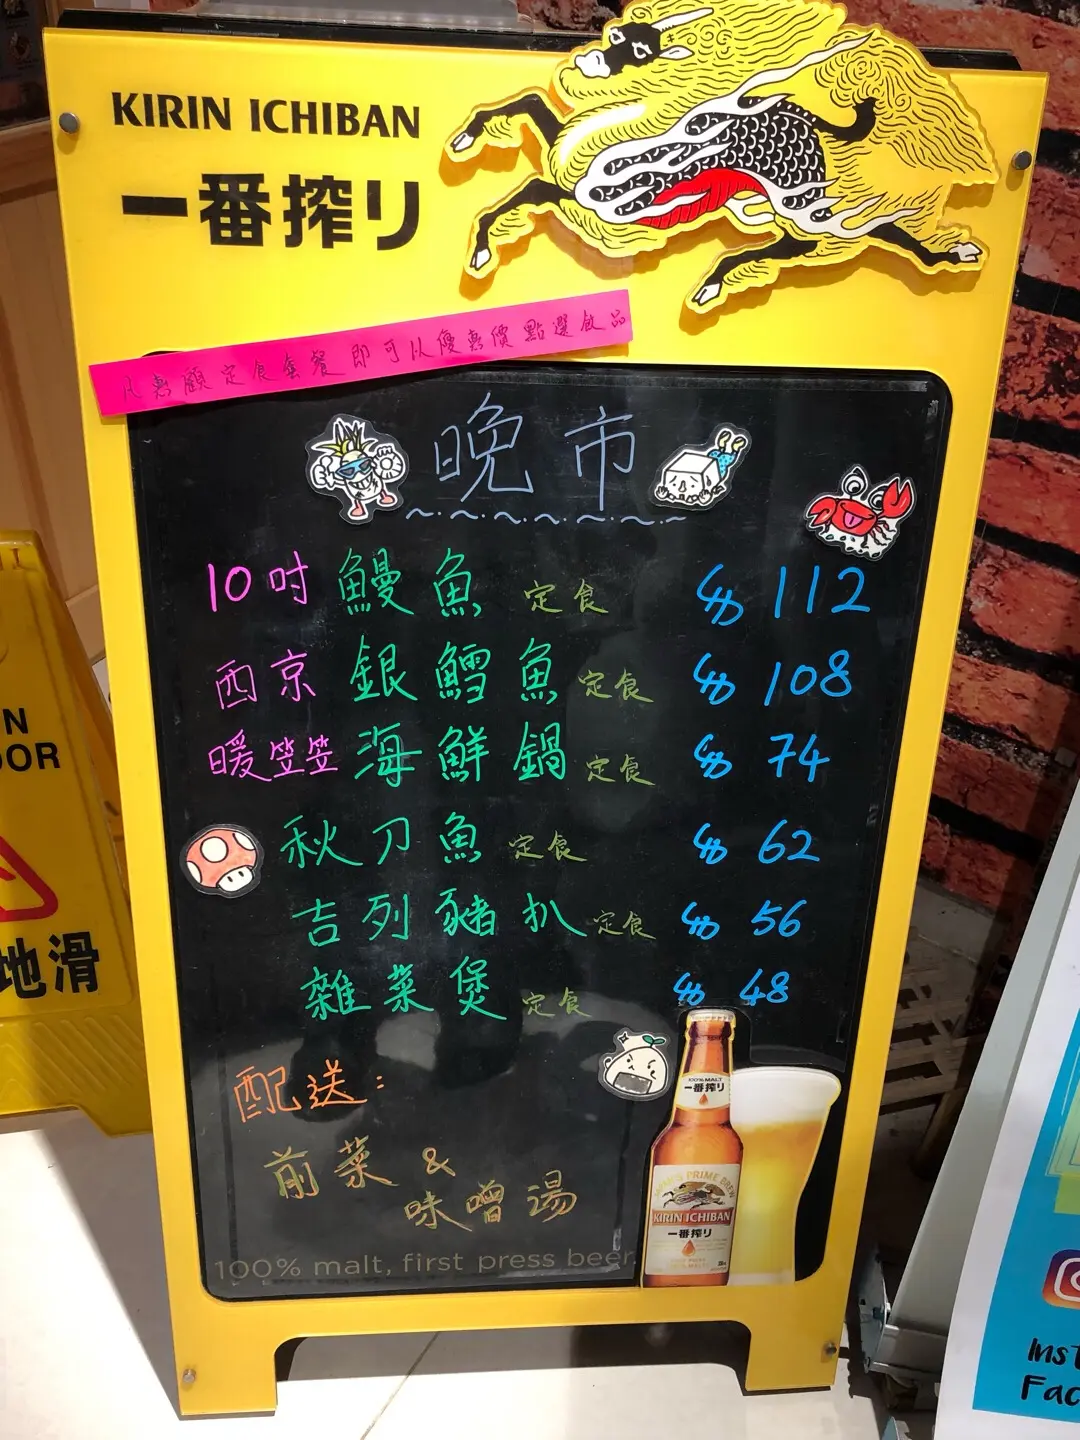 KIRIN ICHIBAN
一番搾り
凡惠顧定食套餐即可以優惠價點選飲品
晚市
10吋鰻魚定食 $112
西京銀鱈魚定食 $108
暖笠笠海鮮鍋定食 $74
秋刀魚定食 $62
吉列豬扒定食 $56
雜菜煲定食 $48
配送：
前菜 &
味噌湯
100% malt, first press beer.
100% MALT
一番搾り
KIRIN ICHIBAN
一番搾り
地滑